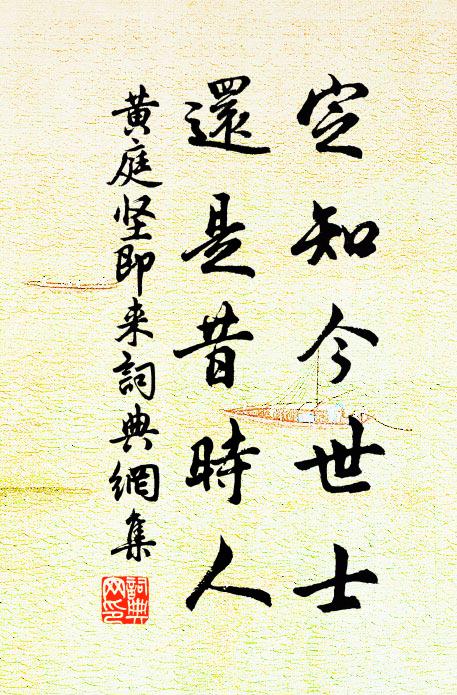 定知今世士
還是昔時人
黄庭坚即来詞典網集
詞典網印